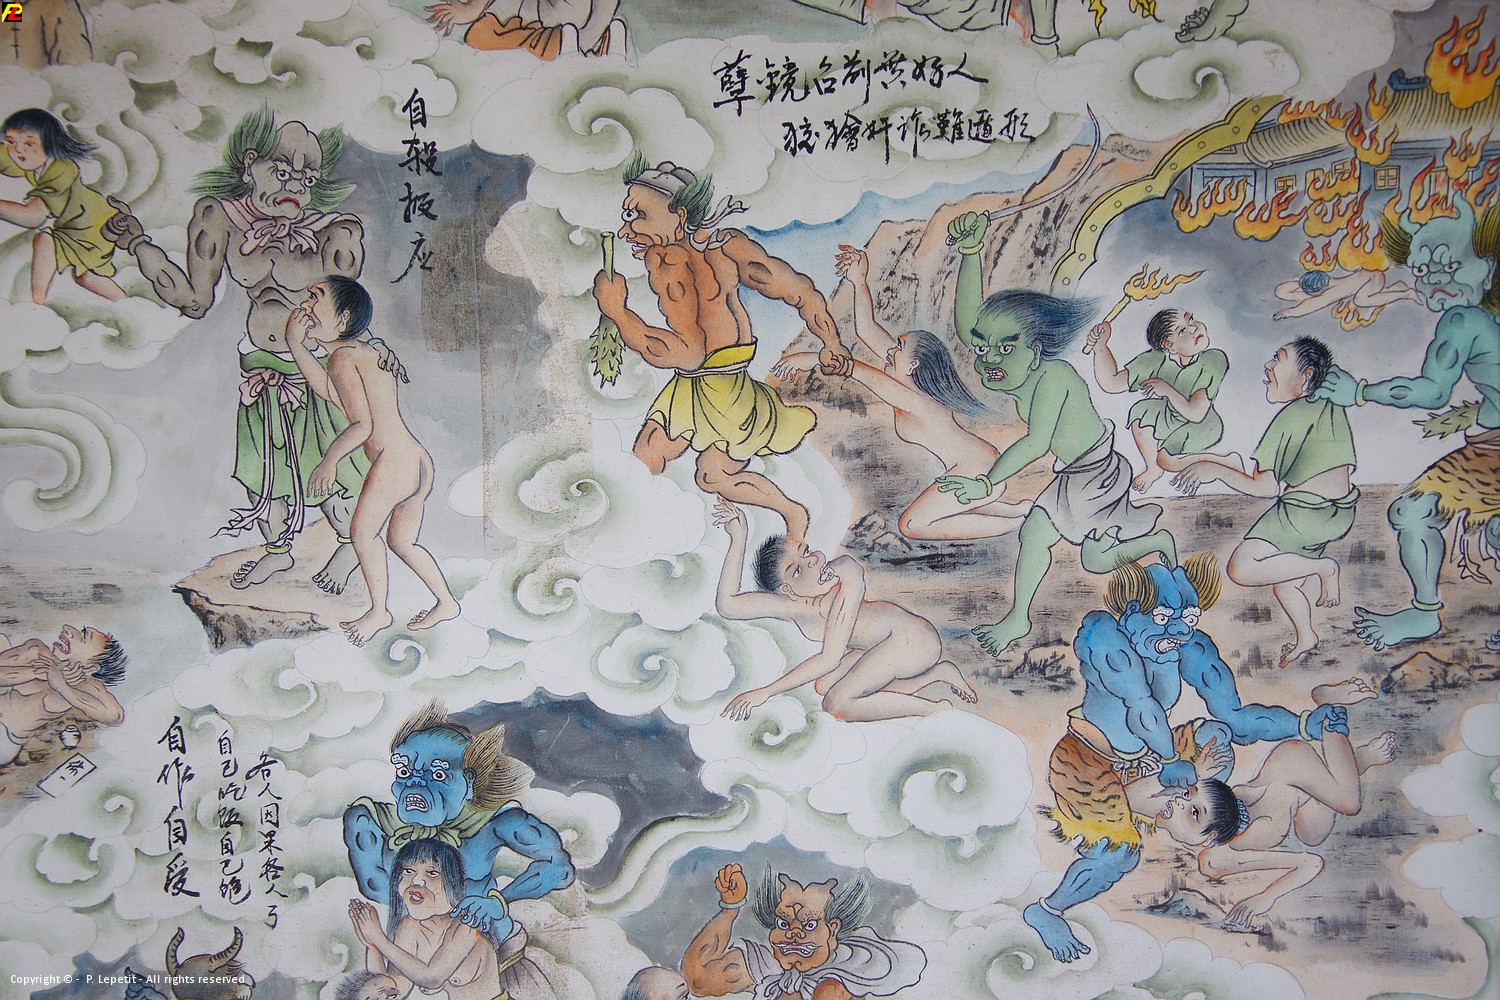 孽鏡台前無好人
狡獪奸詐難遁形
自殺报应
各人因果各人了
自己吃飯自己飽
自作自受
Copyright © - P. Lepetit - All rights reserved